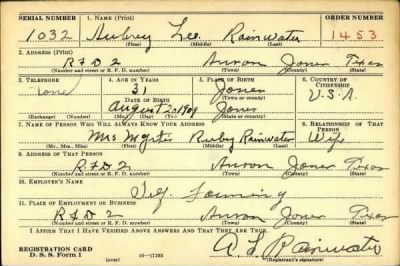 SERIAL NUMBER 1. NAME (Print) ORDER NUMBER
1032 Aubrey Lee Rainwater 1453
(First) (Middle) (Last)
2. ADDRESS (Print)
R F D 2 Anson Jones Texas
(Number and street or R. F. D. number) (Town) (County) (State)
3. TELEPHONE 4. AGE IN YEARS 5. PLACE OF BIRTH 6. COUNTRY OF CITIZENSHIP
none 31 Jones U.S.A
DATE OF BIRTH (Town or county)
August 2 1909 Jones
(Exchange) (Number) (Mo.) (Day) (Yr.) (State or country)
7. NAME OF PERSON WHO WILL ALWAYS KNOW YOUR ADDRESS 8. RELATIONSHIP OF THAT PERSON
Mrs Ruby Rainwater Wife
(Mr., Mrs., Miss) (First) (Middle) (Last)
9. ADDRESS OF THAT PERSON
R F D 2 Anson Jones Texas
(Number and street or R. F. D. number) (Town) (County) (State)
10. EMPLOYER'S NAME
Self Farming
11. PLACE OF EMPLOYMENT OR BUSINESS
R F D 2 Anson Jones Texas
(Number and street or R. F. D. number) (Town) (County) (State)
I AFFIRM THAT I HAVE VERIFIED ABOVE ANSWERS AND THAT THEY ARE TRUE.
REGISTRATION CARD
D. S. S. Form 1 (over) 16-17105 A L Rainwater
(Registrant's signature)